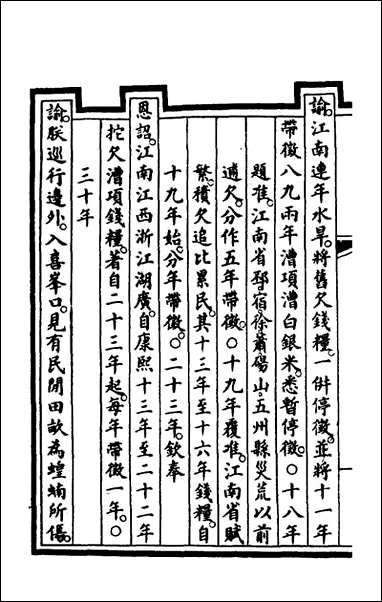 諭江南連年水旱。將舊欠錢糧。一併停徵。並將十一年
帶徵八九兩年漕項漕白銀米。悉暫停徵。〇十八年
題准。江南省邳宿徐蕭碭山。五州縣災荒以前
逋欠。分作五年帶徵。〇十九年覆准。江南省賦
繁。積欠追比累民。其十三年至十六年錢糧。自
十九年始。分年帶徵。〇二十三年。欽奉
恩詔。江南江西浙江湖廣。自康熙十三年至二十二年
拕欠漕項錢糧。著自二十三年起。每年帶徵一年。〇
三十年
諭。朕巡行邊外。入喜峯口。見有民間田畝為蝗蝻所傷。